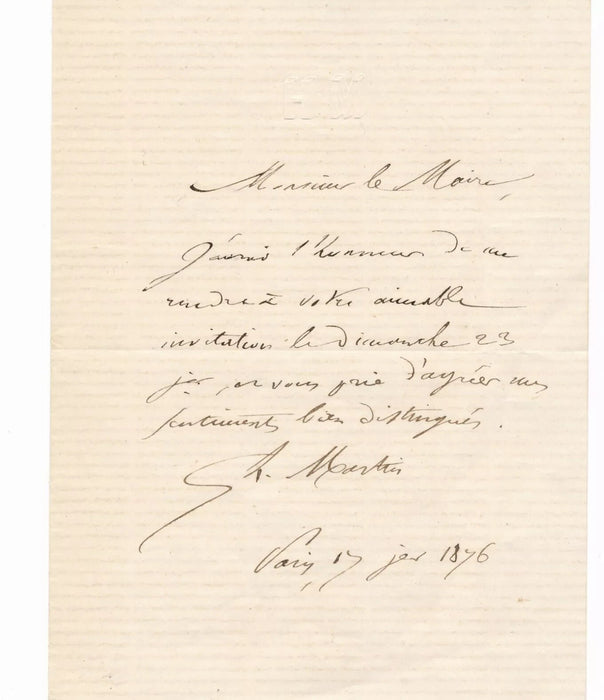 Monsieur le Maire,
J'aurai l'honneur de me
rendre à votre aimable
invitation le Dimanche 23
jer, et vous prie d'agréer mes
sentiments bien distingués.
h. Martin
Paris, 17 jer 1876